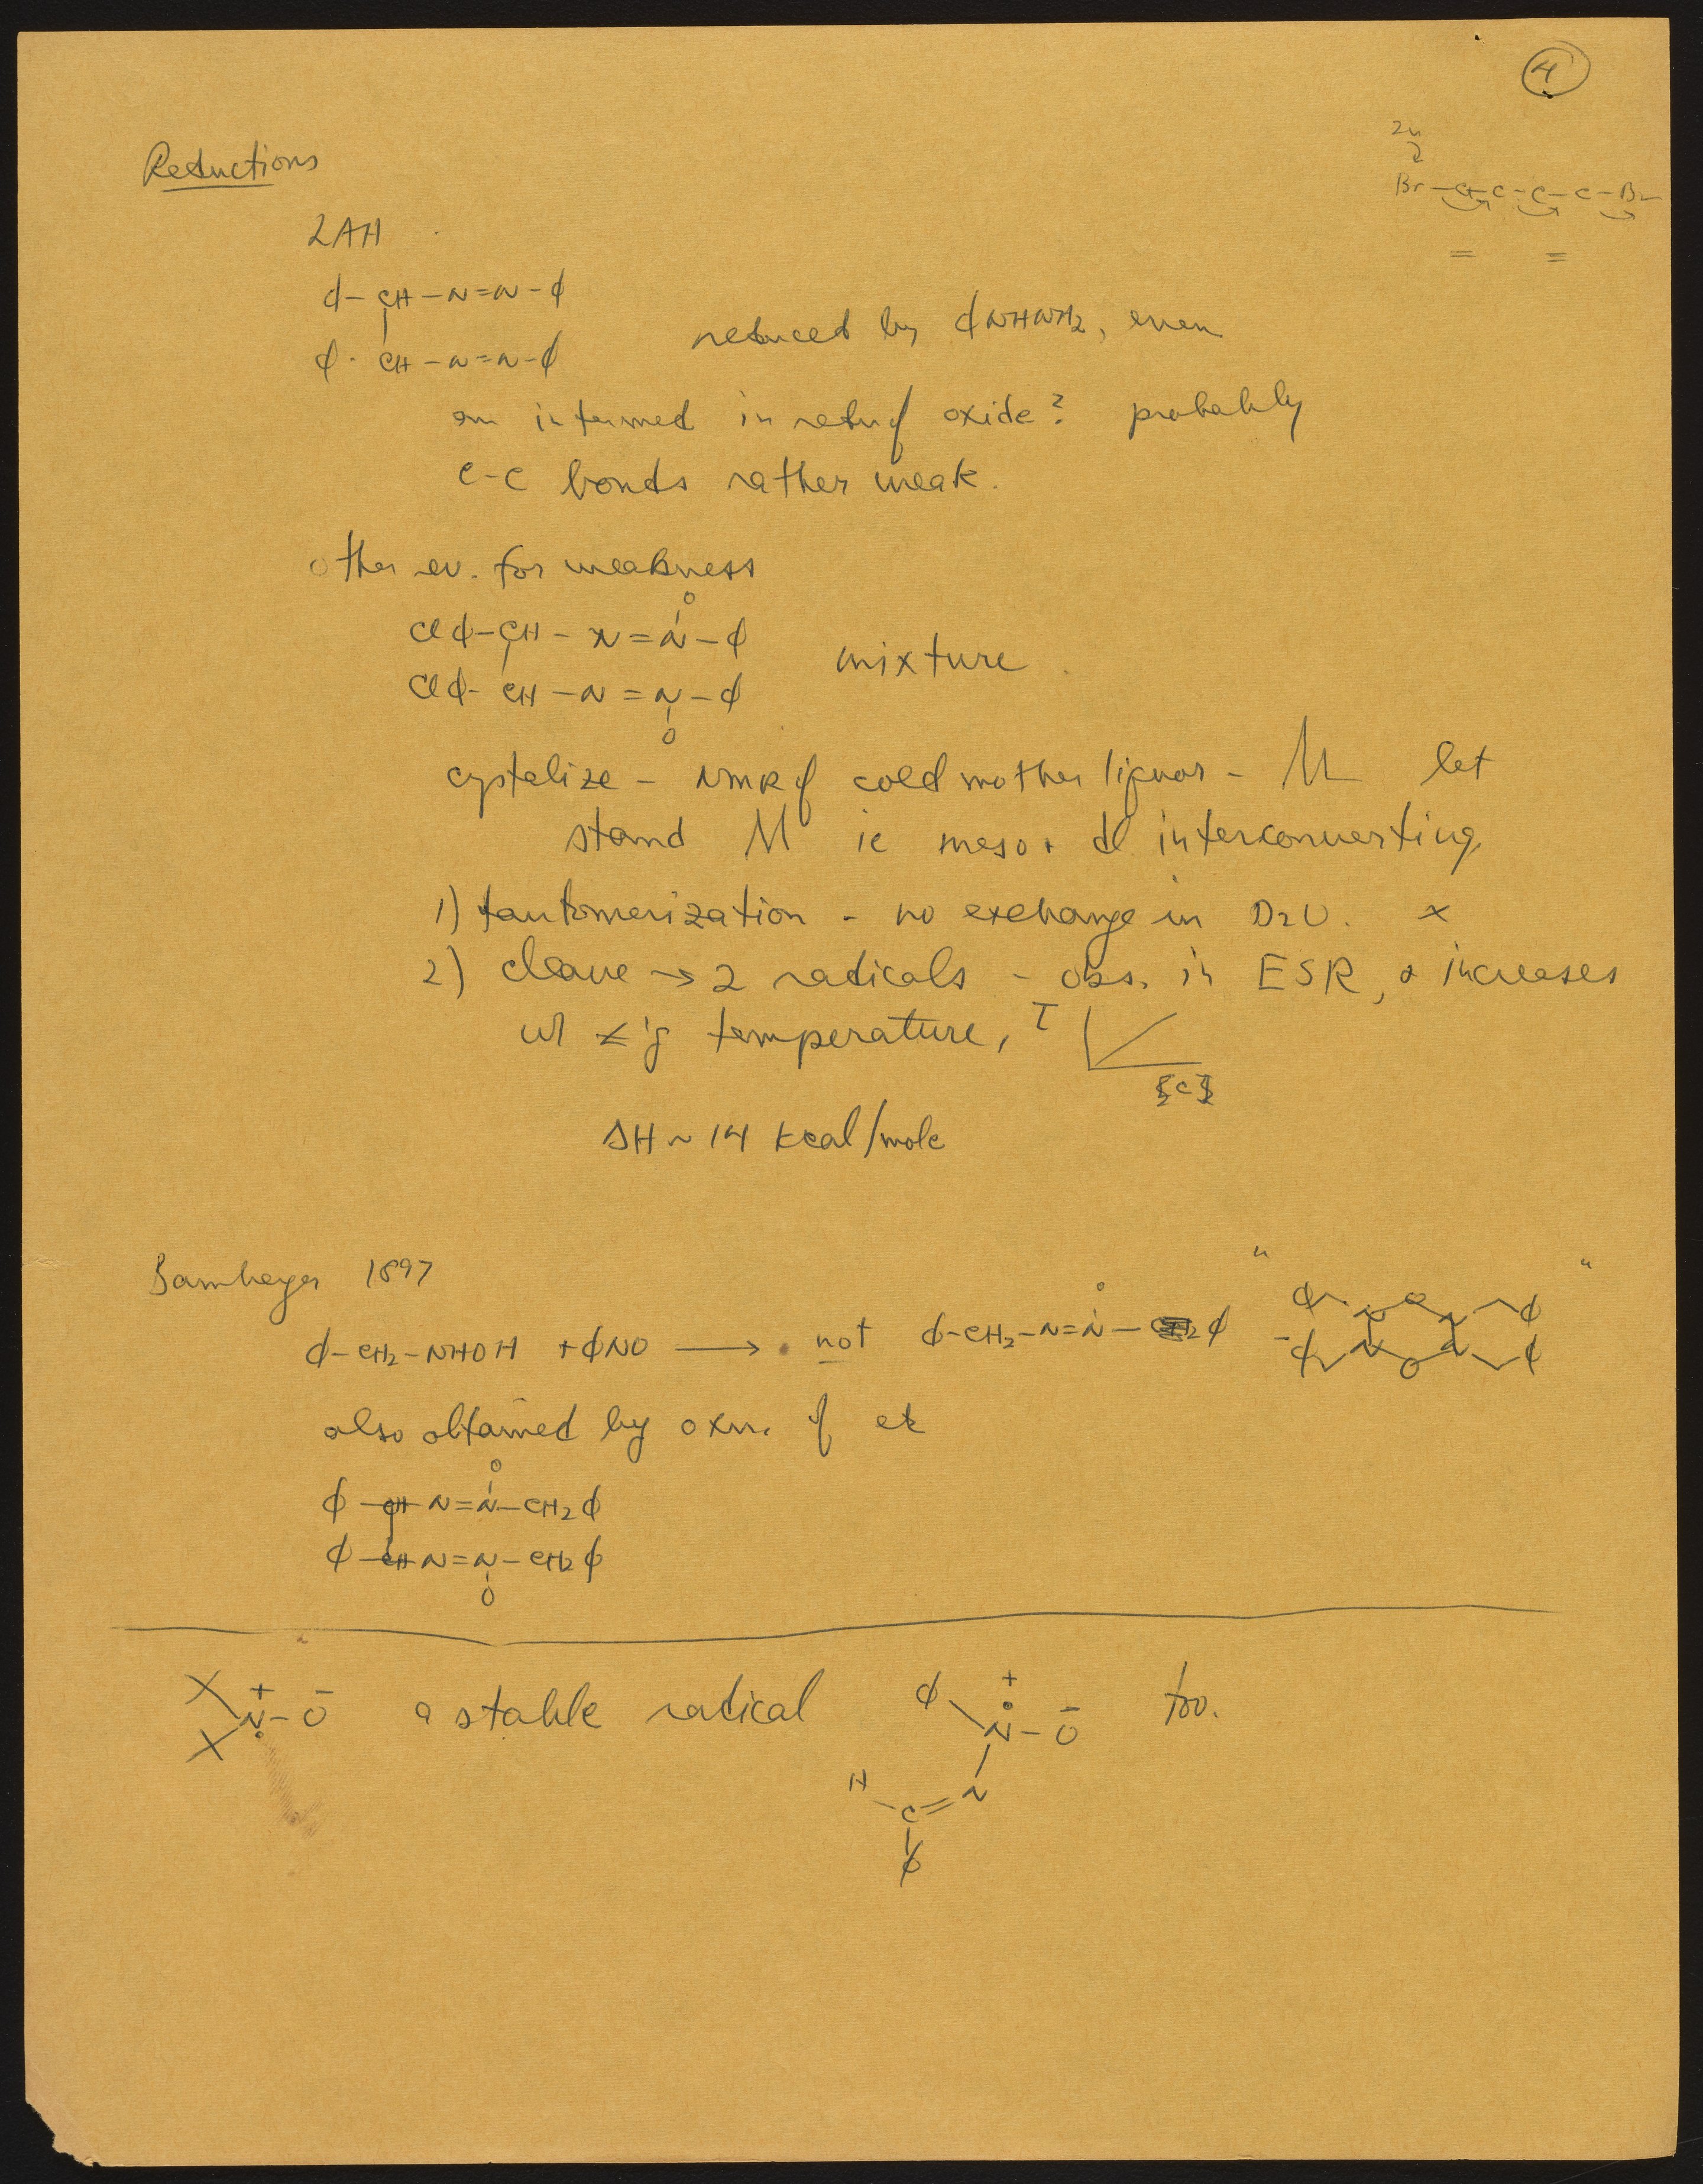 4
Zn
Br-C-C-C-C-Br
= =
Reductions
LAH
ϕ-CH-N=N-ϕ
reduced by ϕNHNH2, even
ϕ-CH-N=N-ϕ
an intermed in redn of oxide? probably
C-C bonds rather weak.
other ev. for weakness
O
Clϕ-CH-N=N-ϕ
mixture
Clϕ-CH-N=N-ϕ
O
cystelize - NMR of cold mother liquor - let
stand ie meso + dl interconverting
1) tautomerization - no exchange in D2O. x
2) cleave → 2 radicals - obs. in ESR, & increases
w/ temperature, I
[c]½
ΔH ~ 14 kcal/mole
Bamberger 1897
O
ϕ-CH2-NHOH + ϕNO → not ϕ-CH2-N=N-ϕ
" ϕ N O N ϕ "
ϕ N O N ϕ
also obtained by oxn. of
O
ϕ-CH-N=N-CH2ϕ
ϕ-CH-N=N-CH2ϕ
O
+ -
N-O a stable radical
ϕ + -
N-O too.
H
C=N
ϕ